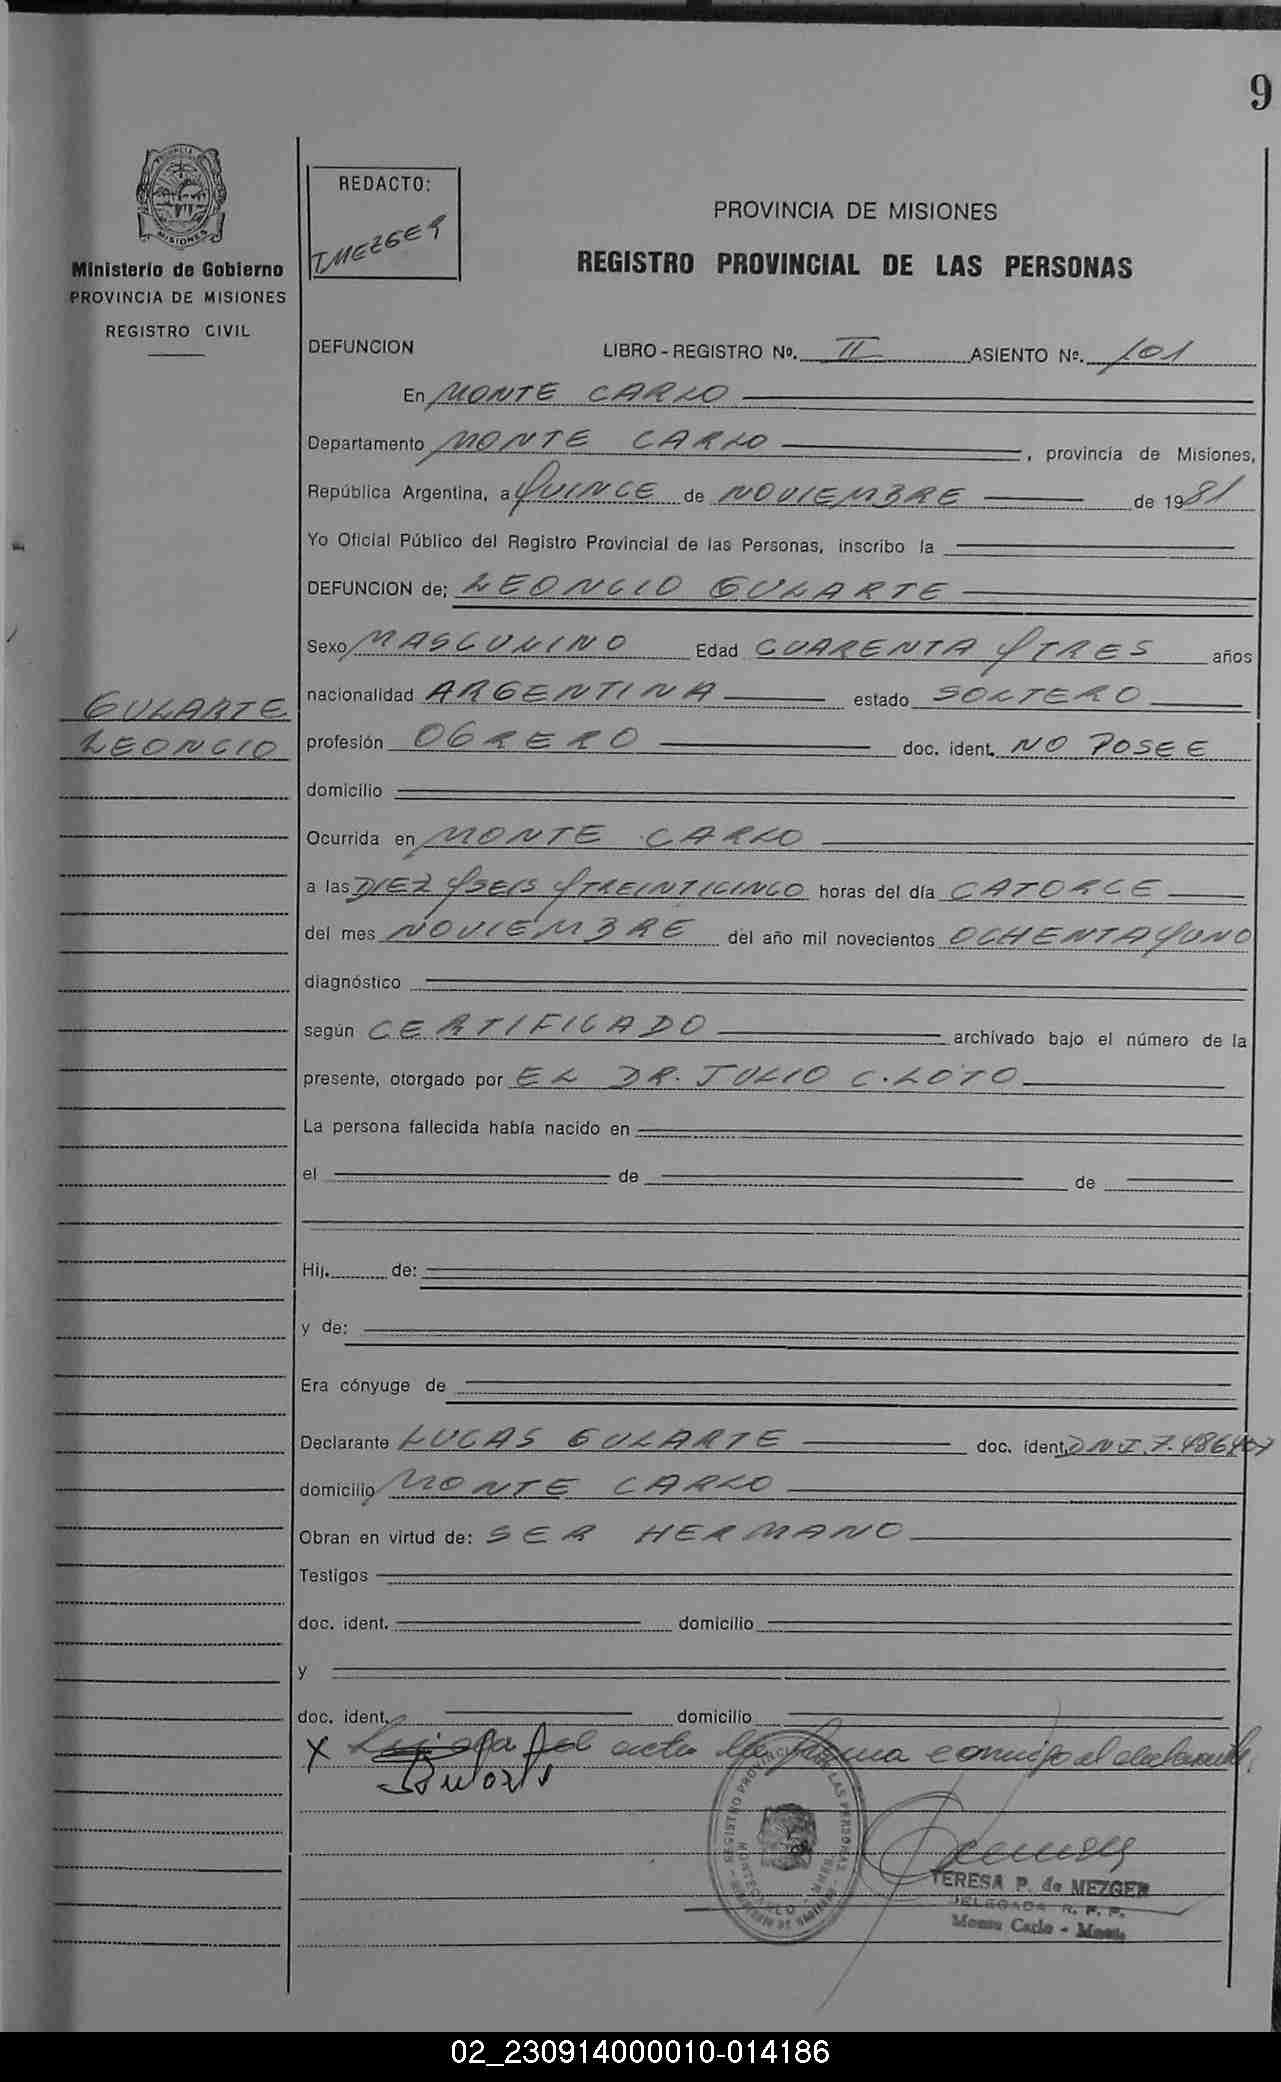 9
PROVINCIA
MISIONES
Ministerio de Gobierno
PROVINCIA DE MISIONES
REGISTRO CIVIL
REDACTO:
T MEZGER
PROVINCIA DE MISIONES
REGISTRO PROVINCIAL DE LAS PERSONAS
DEFUNCION LIBRO-REGISTRO Nº. II ASIENTO Nº. 101
En MONTE CARLO
Departamento MONTE CARLO, provincia de Misiones,
República Argentina, a QUINCE de NOVIEMBRE de 1981
Yo Oficial Público del Registro Provincial de las Personas, inscribo la
DEFUNCION de; LEONCIO GULARTE
Sexo MASCULINO Edad CUARENTA Y TRES años
GULARTE
LEONCIO
nacionalidad ARGENTINA estado SOLTERO
profesión OBRERO doc. ident. NO POSEE
domicilio
Ocurrida en MONTE CARLO
a las DIEZ Y SEIS Y TREINTICINCO horas del día CATORCE
del mes NOVIEMBRE del año mil novecientos OCHENTA Y UNO
diagnóstico
según CERTIFICADO archivado bajo el número de la
presente, otorgado por EL DR. JULIO C. LOTO
La persona fallecida había nacido en
el de de
Hij. de:
y de:
Era cónyuge de
Declarante LUCAS GULARTE doc. ident. DNI. 7.486407
domicilio MONTE CARLO
Obran en virtud de: SER HERMANO
Testigos
doc. ident. domicilio
y
doc. ident. domicilio
X acta la firma conmigo el declarante.
REGISTRO PROVINCIAL DE LAS PERSONAS
TERESA P. de MEZGER
DELEGADA R. P. P.
Monte Carlo - Mnes
02_230914000010-014186